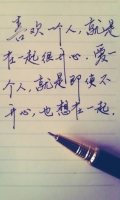 喜欢一个人，就是
在一起很开心，爱一
个人，就是即使不
开心，也想在一起．